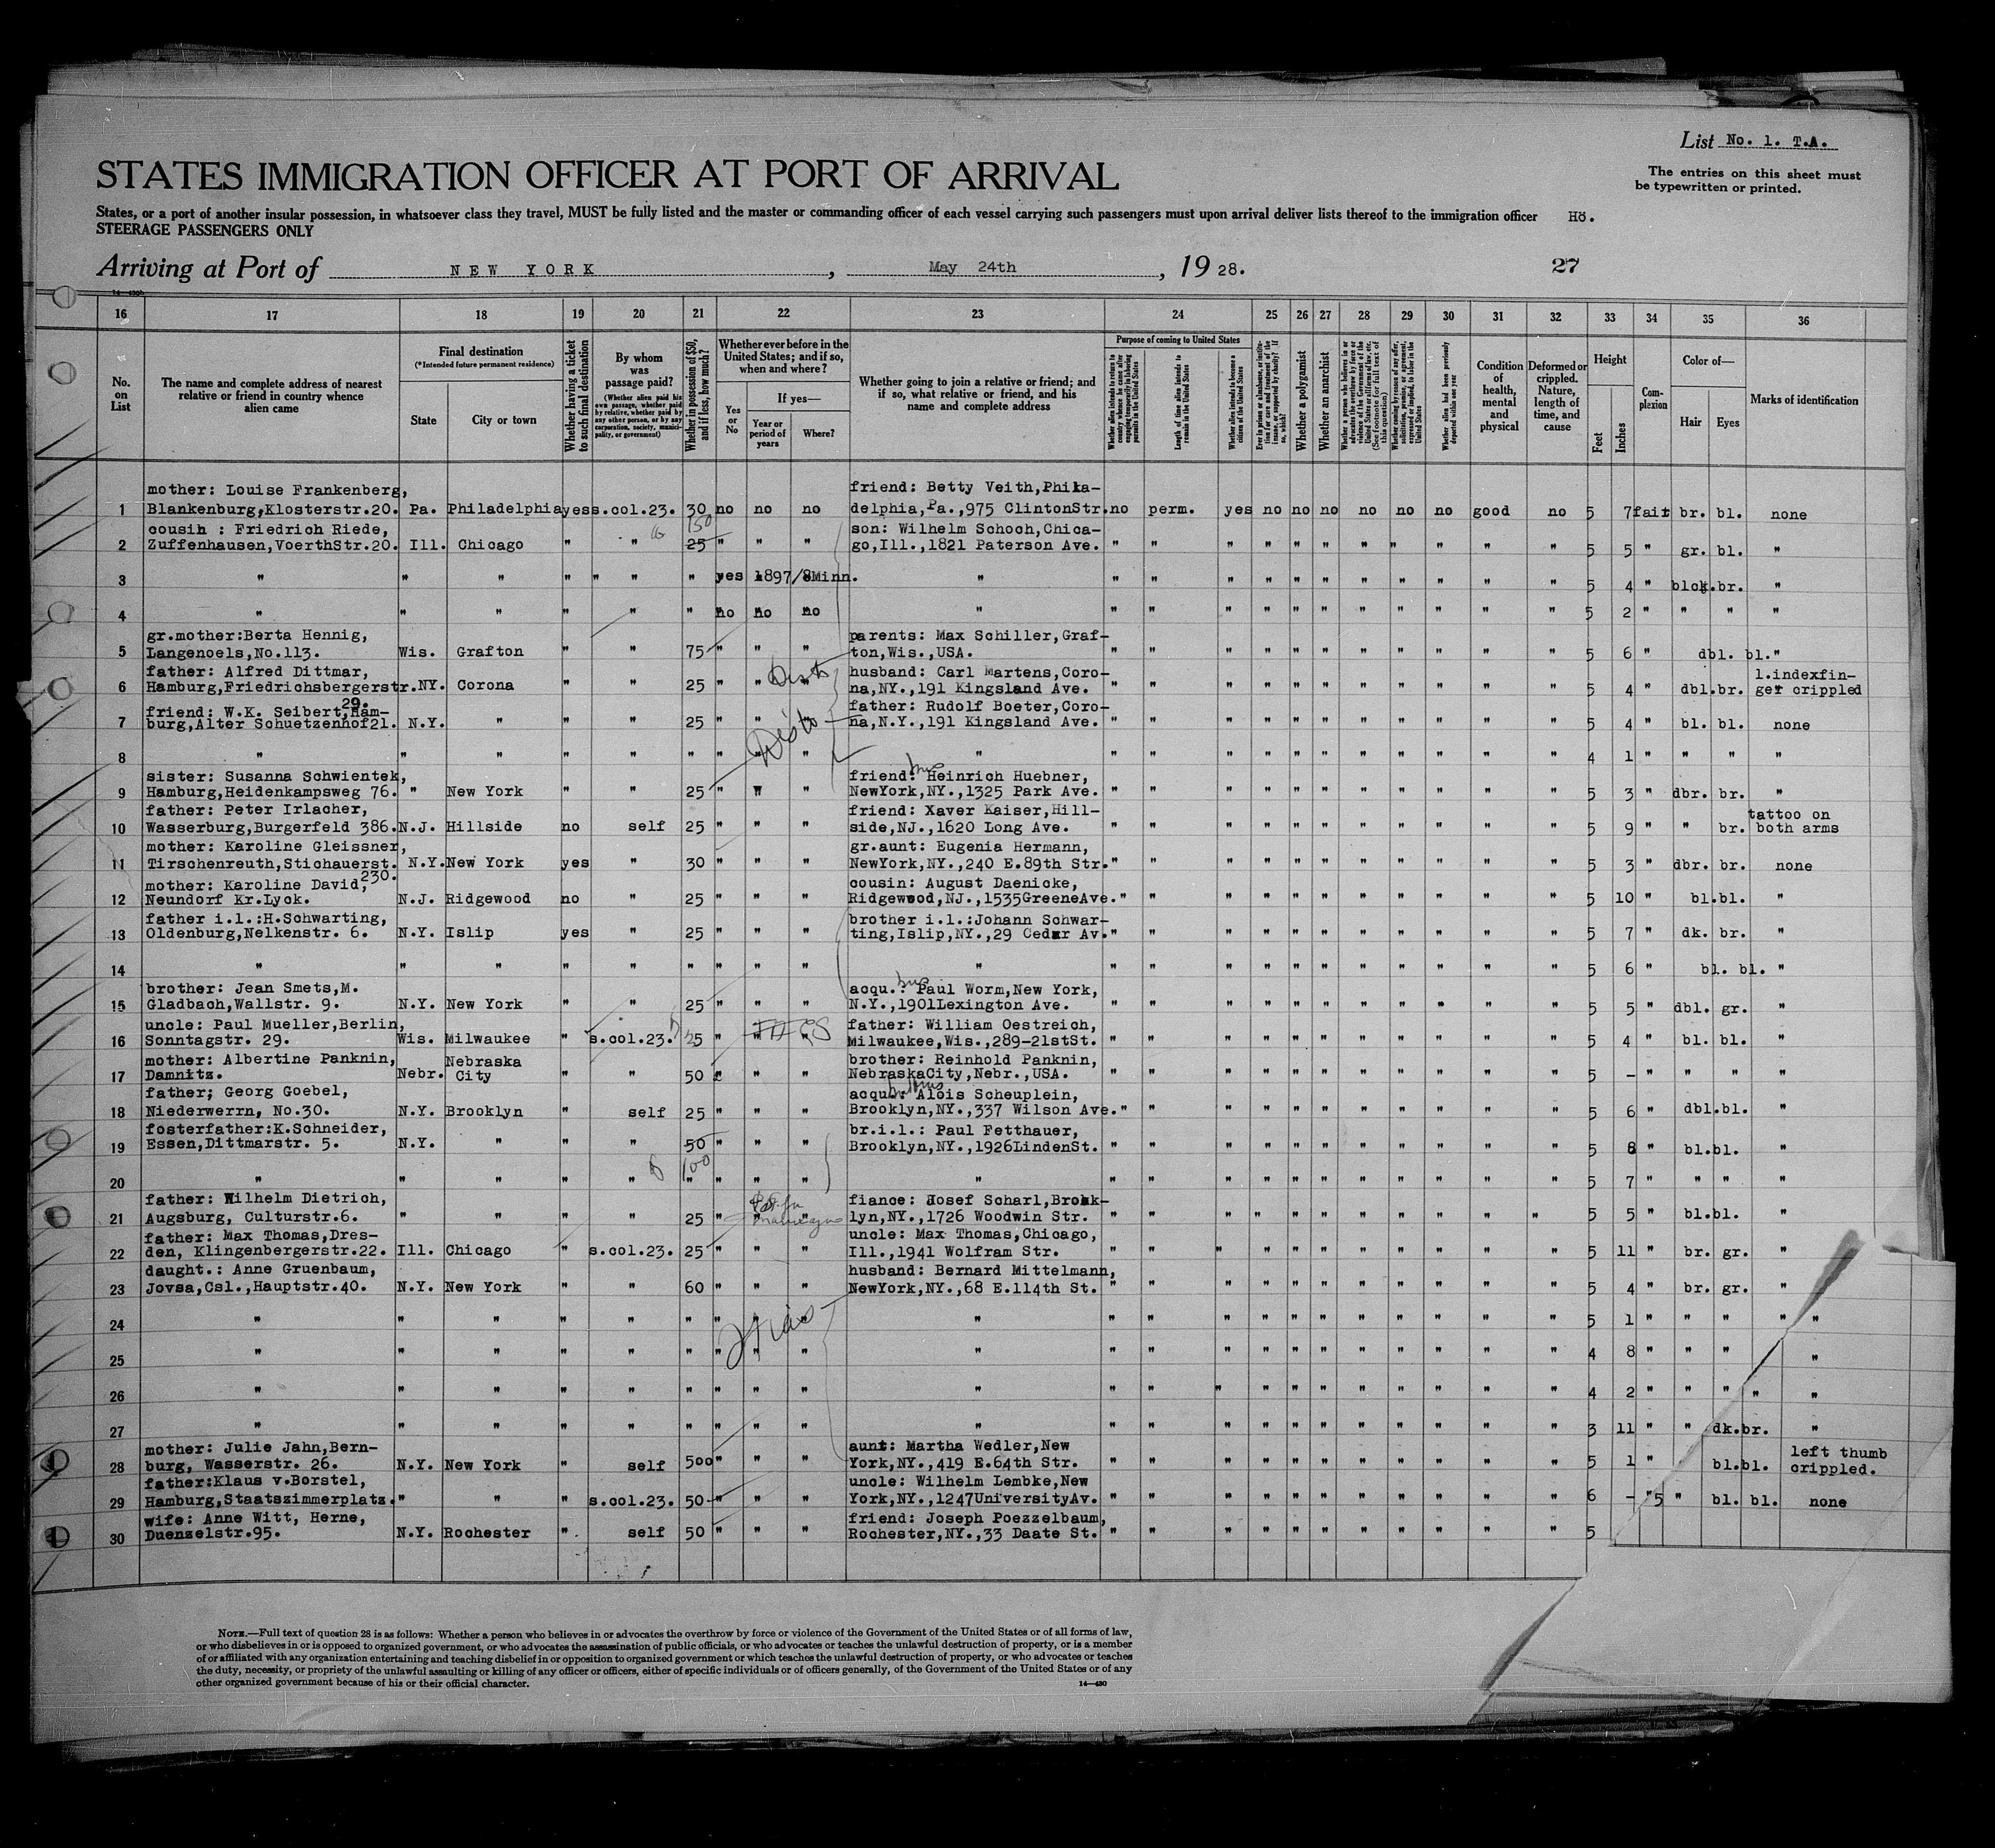 List No. 1. T.A.
STATES IMMIGRATION OFFICER AT PORT OF ARRIVAL
The entries on this sheet must
be typewritten or printed.
States, or a port of another insular possession, in whatsoever class they travel, MUST be fully listed and the master or commanding officer of each vessel carrying such passengers must upon arrival deliver lists thereof to the immigration officer
STEERAGE PASSENGERS ONLY
Arriving at Port of NEW YORK, May 24th, 1928.
27
16 17 18 19 20 21 22 23 24 25 26 27 28 29 30 31 32 33 34 35 36
No. on List
The name and complete address of nearest relative or friend in country whence alien came
Final destination
(*Intended future permanent residence)
State
City or town
Whether having a ticket to such final destination
By whom was passage paid?
(Whether alien paid his own passage, whether paid by relative, whether paid by any other person, or by any corporation, society, municipality, or government)
Whether in possession of $50, and if less, how much?
Whether ever before in the United States; and if so, when and where?
Yes or No
If yes—
Year or period of years
Where?
Whether going to join a relative or friend; and if so, what relative or friend, and his name and complete address
Purpose of coming to United States
Length of time alien intends to remain in the United States
Whether alien intends to become a citizen of the United States
Whether a polygamist
Whether an anarchist
Condition of health, mental and physical
Deformed or crippled. Nature, length of time, and cause
Height
Feet
Inches
Complexion
Color of—
Hair
Eyes
Marks of identification
mother: Louise Frankenberg, friend: Betty Veith, Phila-
1 Blankenburg,Klosterstr.20. Pa. Philadelphia yes s.col.23. 30 no no no delphia,Pa.,975 ClintonStr. no perm. yes no no no no no no good no 5 7 fair br. bl. none
cousin : Friedrich Riede, 150 son: Wilhelm Schoch,Chica-
2 Zuffenhausen,VoerthStr.20. Ill. Chicago " " 25 " " " go,Ill.,1821 Paterson Ave. " " " " " " " " " " " 5 5 " gr. bl. "
3 " " " " " " yes 1897/8 Minn. " " " " " " " " " " " " 5 4 " blck. br. "
4 " " " " " " no no no " " " " " " " " " " " " 5 2 " " " "
gr.mother:Berta Hennig, parents: Max Schiller,Graf-
5 Langenoels,No.113. Wis. Grafton " " 75 " " " ton,Wis.,USA. " " " " " " " " " " " 5 6 " dbl. bl. "
father: Alfred Dittmar, husband: Carl Martens,Coro- l.indexfin-
6 Hamburg,Friedrichsbergerstr. 29. NY. Corona " " 25 " " " na,NY.,191 Kingsland Ave. " " " " " " " " " " " 5 4 " dbl. br. ger crippled
friend: W.K. Seibert,Ham- father: Rudolf Boeter,Coro-
7 burg,Alter Schuetzenhof21. N.Y. " " " 25 " " " na,N.Y.,191 Kingsland Ave. " " " " " " " " " " " 5 4 " bl. bl. none
8 " " " " " " " " " " " " " " " " " " " " " 4 1 " " " "
sister: Susanna Schwientek, friend: Heinrich Huebner,
9 Hamburg,Heidenkampsweg 76. " New York " " 25 " " " NewYork,NY.,1325 Park Ave. " " " " " " " " " " " 5 3 " dbr. br. "
father: Peter Irlacher, friend: Xaver Kaiser,Hill- tattoo on
10 Wasserburg,Burgerfeld 386. N.J. Hillside no self 25 " " " side,NJ.,1620 Long Ave. " " " " " " " " " " " 5 9 " " br. both arms
mother: Karoline Gleissner, gr.aunt: Eugenia Hermann,
11 Tirschenreuth,Stichauerst. 230. N.Y. New York yes " 30 " " " NewYork,NY.,240 E.89th Str. " " " " " " " " " " " 5 3 " dbr. br. none
mother: Karoline David, cousin: August Daenicke,
12 Neundorf Kr.Lyck. N.J. Ridgewood no " 25 " " " Ridgewood,NJ.,1535GreeneAve. " " " " " " " " " " " 5 10 " bl. bl. "
father i.l.:H.Schwarting, brother i.l.:Johann Schwar-
13 Oldenburg,Nelkenstr. 6. N.Y. Islip yes " 25 " " " ting,Islip,NY.,29 Cedar Av. " " " " " " " " " " " 5 7 " dk. br. "
14 " " " " " " " " " " " " " " " " " " " " " 5 6 " bl. bl. "
brother: Jean Smets,M. acqu.: Paul Worm,New York,
15 Gladbach,Wallstr. 9. N.Y. New York " " 25 " " " N.Y.,1901Lexington Ave. " " " " " " " " " " " 5 5 " dbl. gr. "
uncle: Paul Mueller,Berlin, father: William Oestreich,
16 Sonntagstr. 29. Wis. Milwaukee " s.col.23. 25 " " " Milwaukee,Wis.,289-21stSt. " " " " " " " " " " " 5 4 " bl. bl. "
mother: Albertine Panknin, Nebraska brother: Reinhold Panknin,
17 Damnitz. Nebr. City " " 50 " " " NebraskaCity,Nebr.,USA. " " " " " " " " " " " 5 - " " " "
father; Georg Goebel, acqu.: Alois Scheuplein,
18 Niederwerrn, No.30. N.Y. Brooklyn " self 25 " " " Brooklyn,NY.,337 Wilson Ave. " " " " " " " " " " " 5 6 " dbl. bl. "
fosterfather:K.Schneider, br.i.l.: Paul Fetthauer,
19 Essen,Dittmarstr. 5. N.Y. " " " 50 " " " Brooklyn,NY.,1926LindenSt. " " " " " " " " " " " 5 8 " bl. bl. "
100
20 " " " " " " " " " " " " " " " " " " " " 5 7 " " " "
father: Wilhelm Dietrich, fiance: Josef Scharl,Brook-
21 Augsburg, Culturstr.6. " " " " 25 " " " lyn,NY.,1726 Woodwin Str. " " " " " " " " " " " 5 5 " bl. bl. "
father: Max Thomas,Dres- uncle: Max Thomas,Chicago,
22 den, Klingenbergerstr.22. Ill. Chicago " s.col.23. 25 " " " Ill.,1941 Wolfram Str. " " " " " " " " " " " 5 11 " br. gr. "
daught.: Anne Gruenbaum, husband: Bernard Mittelmann,
23 Jovsa,Csl.,Hauptstr.40. N.Y. New York " " 60 " " " NewYork,NY.,68 E.114th St. " " " " " " " " " " " 5 4 " br. gr. "
24 " " " " " " " " " " " " " " " " " " " " " 5 1 " " " "
25 " " " " " " " " " " " " " " " " " " " " " 4 8 " " " "
26 " " " " " " " " " " " " " " " " " " " " " 4 2 " " " "
27 " " " " " " " " " " " " " " " " " " " " " 3 11 " " dk.br. "
mother: Julie Jahn,Bern- aunt: Martha Wedler,New left thumb
28 burg, Wasserstr. 26. N.Y. New York " self 500 " " " York,NY.,419 E.64th Str. " " " " " " " " " " " 5 1 " bl. bl. crippled.
father:Klaus v.Borstel, uncle: Wilhelm Lembke,New
29 Hamburg,Staatszimmerplatz. " " " s.col.23. 50 " " " York,NY.,1247UniversityAv. " " " " " " " " " " " 6 - " 5 " bl. bl. none
wife: Anne Witt, Herne, friend: Joseph Poezzelbaum,
30 Duenzelstr.95. N.Y. Rochester " self 50 " " " Rochester,NY.,33 Daate St. " " " " " " " " " " " 5
NOTE.—Full text of question 28 is as follows: Whether a person who believes in or advocates the overthrow by force or violence of the Government of the United States or of all forms of law,
or who disbelieves in or is opposed to organized government, or who advocates the assassination of public officials, or who advocates or teaches the unlawful destruction of property, or is a member
of or affiliated with any organization entertaining and teaching disbelief in or opposition to organized government or which teaches the unlawful destruction of property, or who advocates or teaches
the duty, necessity, or propriety of the unlawful assaulting or killing of any officer or officers, either of specific individuals or of officers generally, of the Government of the United States or of any
other organized government because of his or their official character.
14—430